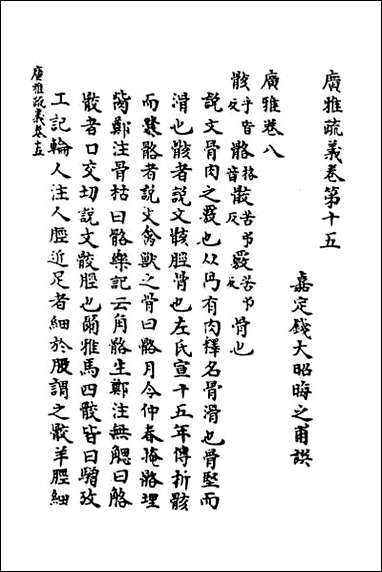 廣雅疏義卷第十五
嘉定錢大昭晦之甫譔
廣雅卷八
骸乎皆反骼格音骹苦弔反覈苦弔反骨也
說文骨肉之覈也从冎有肉釋名骨滑也骨堅而
滑也骸者說文骸脛骨也左氏宣十五年傳折骸
而爨骼者說文禽獸之骨曰骼月令仲春掩骼埋
胔鄭注骨枯曰骼樂記云角骼生鄭注無䚡曰骼
骹者口交切說文骹脛也爾雅馬四骹皆曰驓攷
工記輪人注人脛近足者細於股謂之骹羊脛細
廣雅疏義卷十五